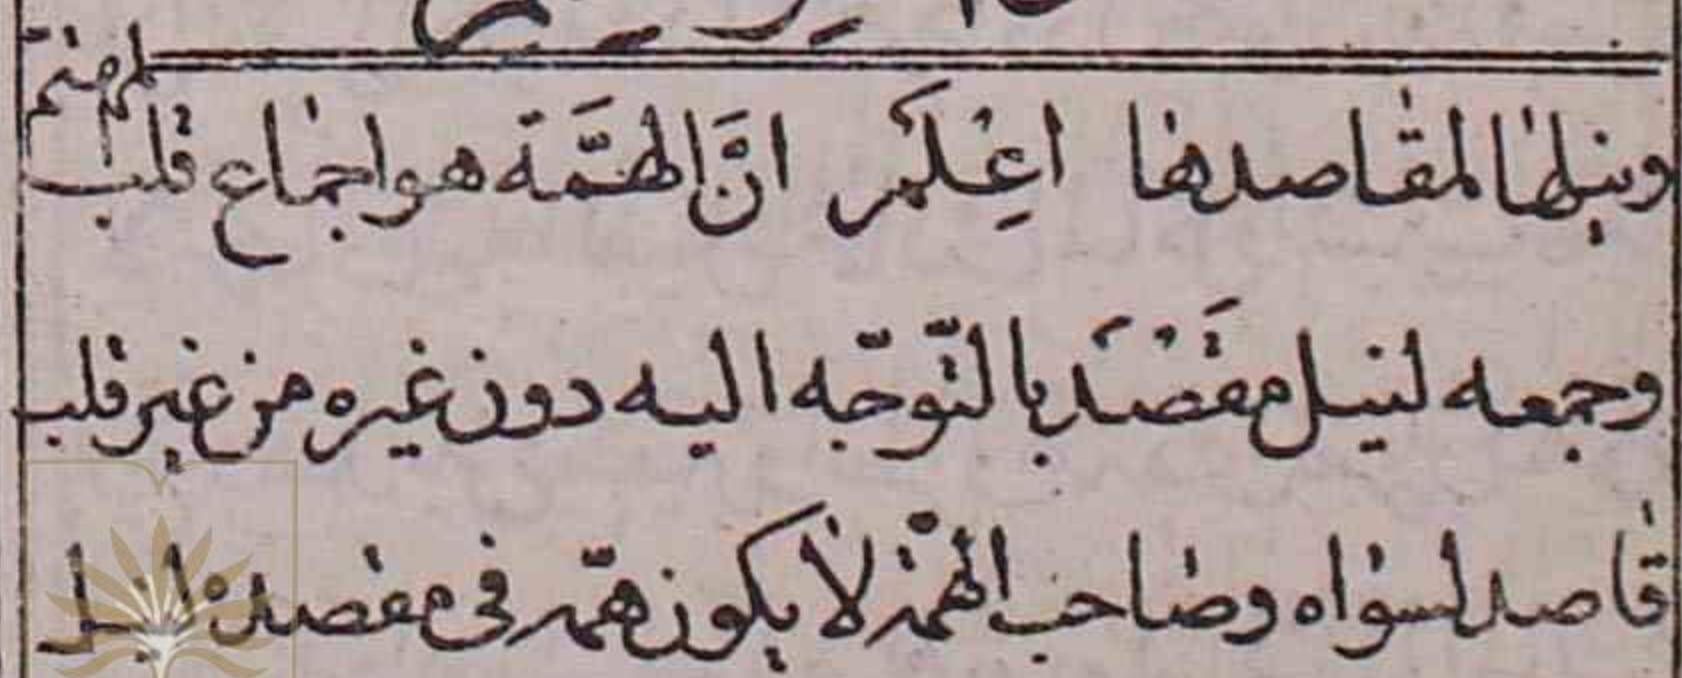 ونيلها لمقاصدها اعْلَمْ انَّ الهمَّة هو اجماع قلب المهتم
وجمعه لنيل مقصد بالتّوجّه اليه دون غيره من غير قلب
قاصد لسواه وصاحب الهمّة لا يكون همّه فى مقصده